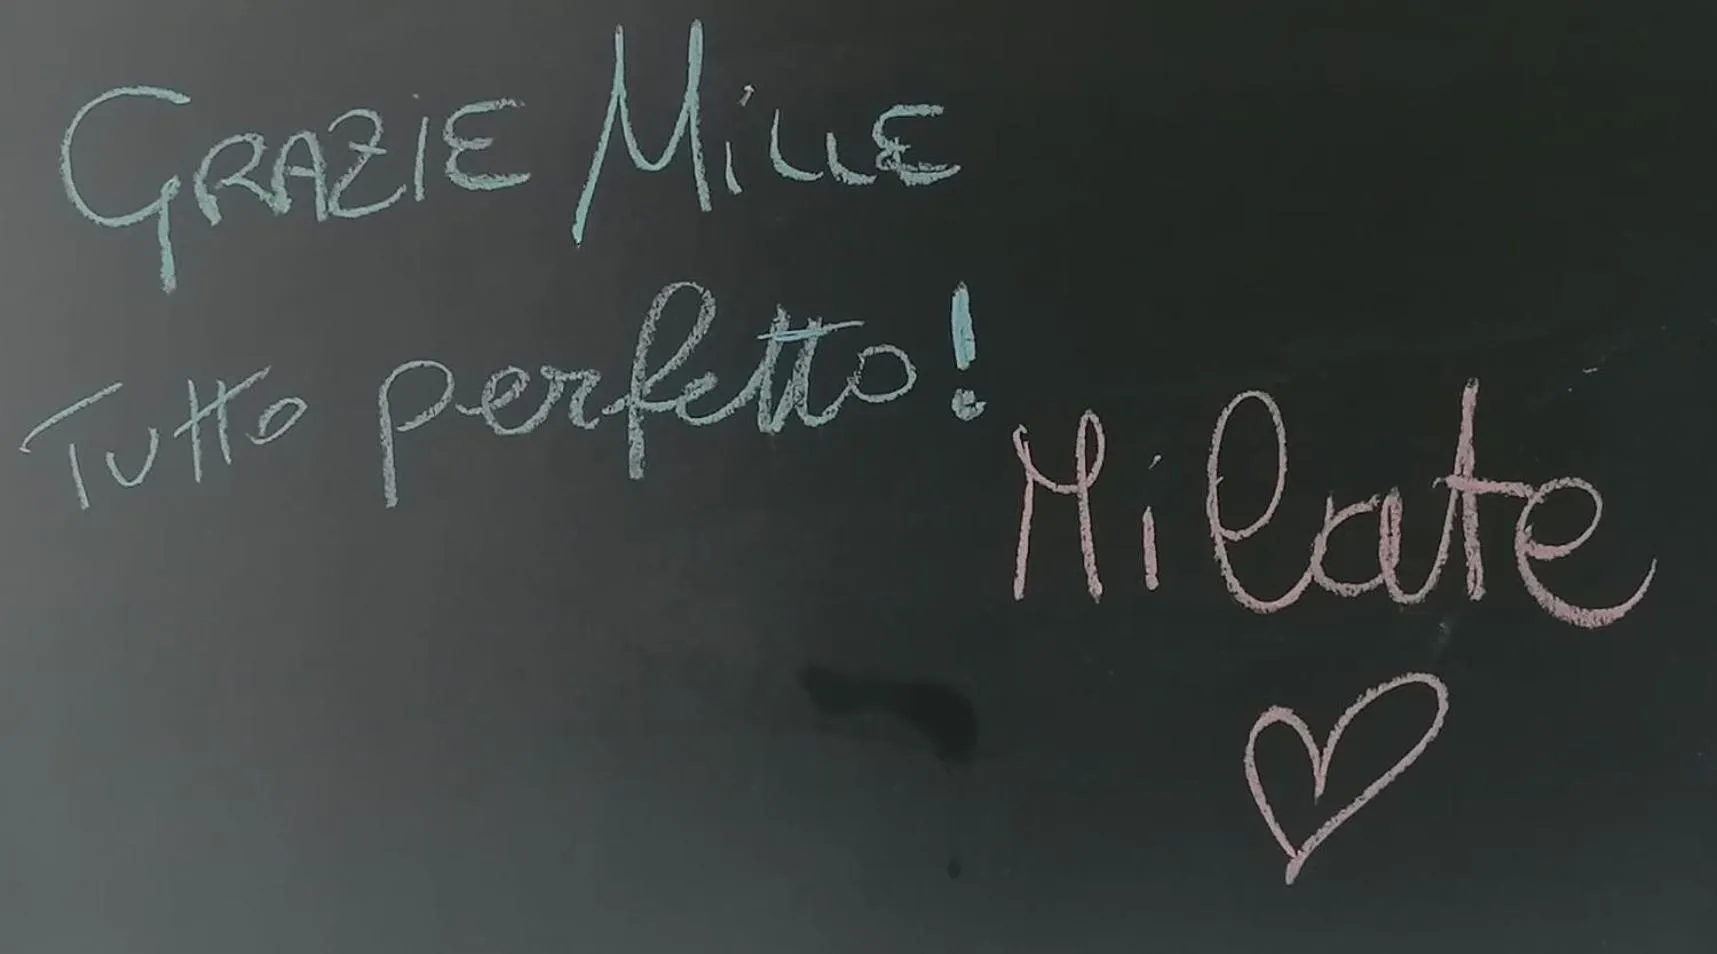 GRAZIE MiLLE
TuTTo perfetto!
Milate